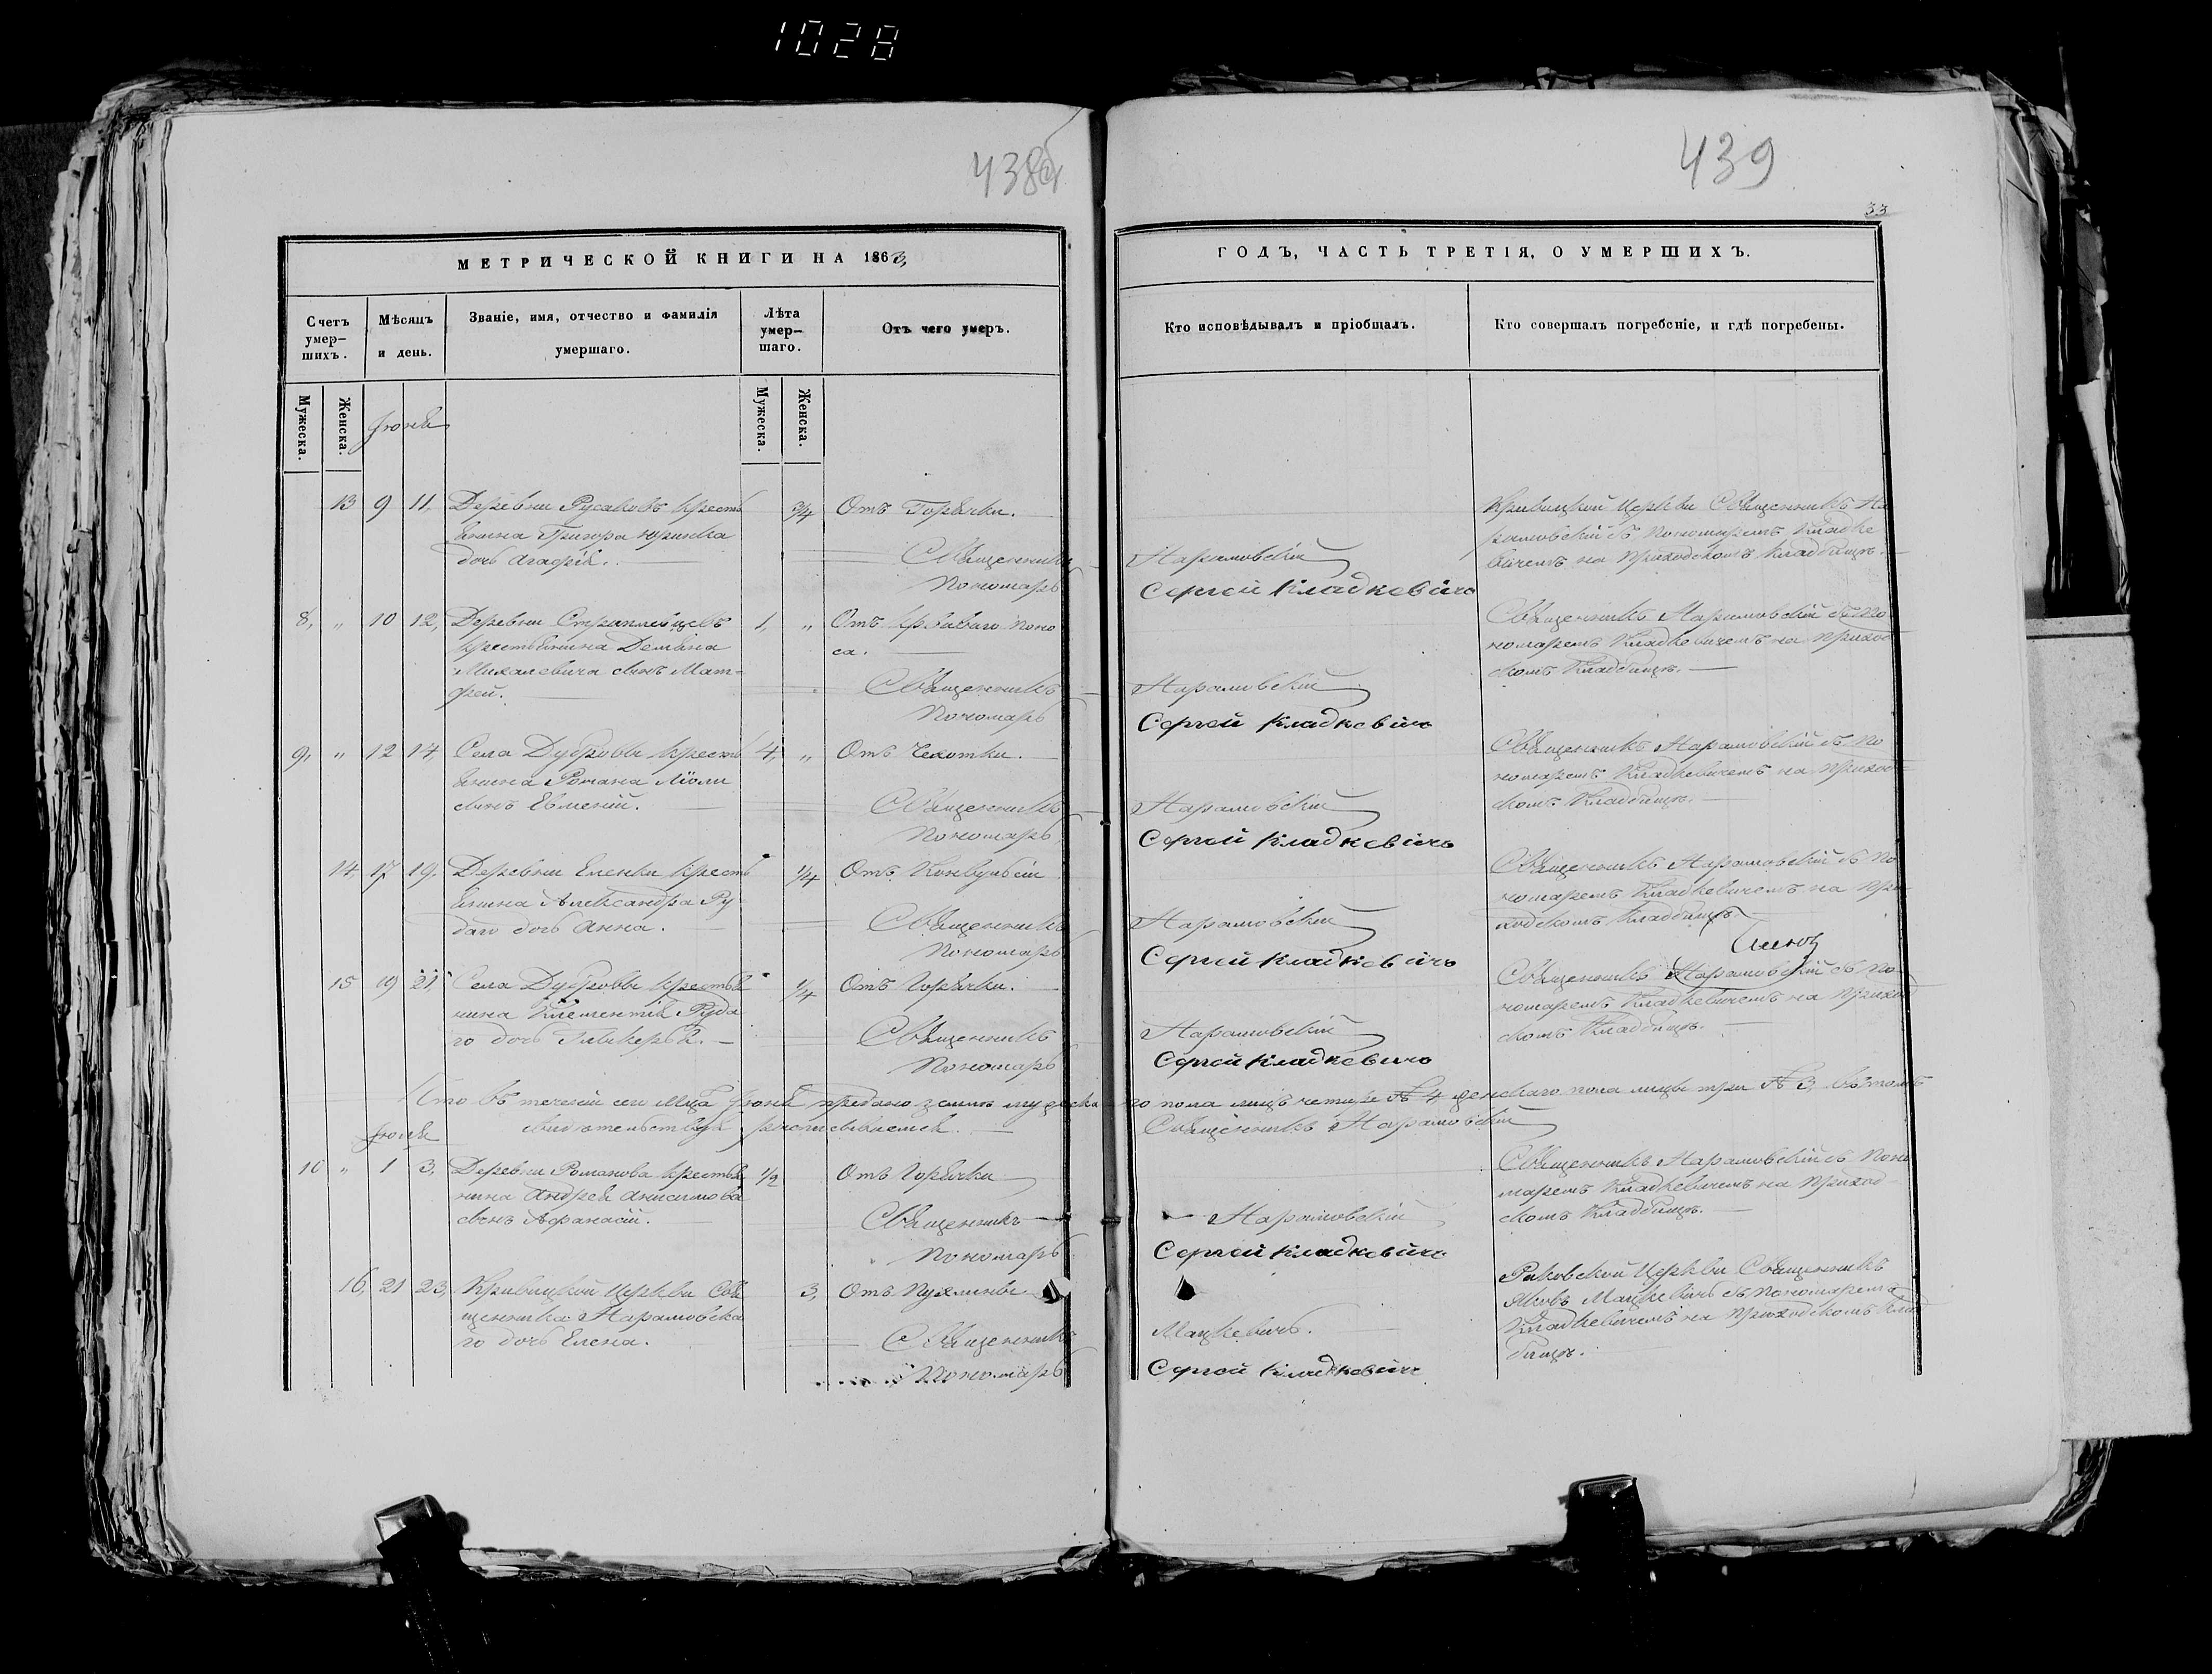 1028
438об
439
33
МЕТРИЧЕСКОЙ КНИГИ НА 1863,
ГОДЪ, ЧАСТЬ ТРЕТІЯ, О УМЕРШИХЪ.
Счетъ умер-
шихъ.
Мѣсяцъ
и день.
Званіе, имя, отчество и фамилія
умершаго.
Лѣта
умер-
шаго.
Отъ чего умеръ.
Кто исповѣдывалъ и пріобщалъ.
Кто совершалъ погребеніе, и гдѣ погребены.
Мужеска.
Женска.
Мужеска.
Женска.
13 9 11, Деревни Русаковъ кресть 3/4 Отъ Горячки.
янина Григора Юринка
дочь Агафія.
Священникъ Нарамовскій
Пономарь Сергей Кладкевичъ
Кривицкой Церкви Священникъ На
рамовскій съ Пономаремъ Кладке
вичемъ на Приходскомъ Кладбищѣ.
8, " 10 12, Деревни кресть 1, " Отъ Кроваваго поно
крестьянина Демьяна са.
Михалевича сынъ Мат-
фей.
Священникъ Нарамовскій
Пономарь Сергей Кладкевичъ
Священникъ Нарамовскій съ По
номаремъ Кладкевичемъ на Приход
скомъ Кладбищѣ.
9, " 12 14, Села Дубровы кресть 4, " Отъ Чехотки.
янина Романа
сынъ Евменій.
Священникъ Нарамовскій
Пономарь Сергей Кладкевичъ
Священникъ Нарамовскій съ По
номаремъ Кладкевичемъ на Приход
скомъ Кладбищѣ.
14 17 19, Деревни Еленки кресть 1/4 Отъ Конвульсіи
янина Александра Ру
даго дочь Анна.
Священникъ Нарамовскій
Пономарь Сергей Кладкевичъ
Священникъ Нарамовскій съ По
номаремъ Кладкевичемъ на При
ходскомъ Кладбищѣ.
15 19 21, Села Дубровы крестья 1/4 Отъ Горячки.
нина Климентія Рудо
го дочь Гликерья.
Священникъ Нарамовскій
Пономарь Сергей Кладкевичъ
Священникъ Нарамовскій съ По
номаремъ Кладкевичемъ на Приход
скомъ Кладбищѣ.
Что въ теченіи сего мѣца предано землѣ мужеска го пола лицъ четыре № 4 женскаго пола лицъ три № 3, въ томъ
свидѣтельствуя росписываемся. Священникъ Нарамовскій
10 " 1 3, Деревни Романова крестья 1/2 Отъ Горячки
нина Андрея Анисимова
сынъ Афанасій.
Священникъ Нарамовскій
Пономарь Сергей Кладкевичъ
Священникъ Нарамовскій съ Поно
маремъ Кладкевичемъ на Приход
скомъ Кладбищѣ.
16, 21 23, Кривицкой Церкви Свя 3, Отъ Пухлины
щенника Нарамовска
го дочь Елена.
Священникъ Мацкевичъ.
Пономарь Сергей Кладкевичъ
Раковской Церкви Священникъ
Яковъ Мацкевичъ съ Пономаремъ
Кладкевичемъ на Приходскомъ Клад
бищѣ.